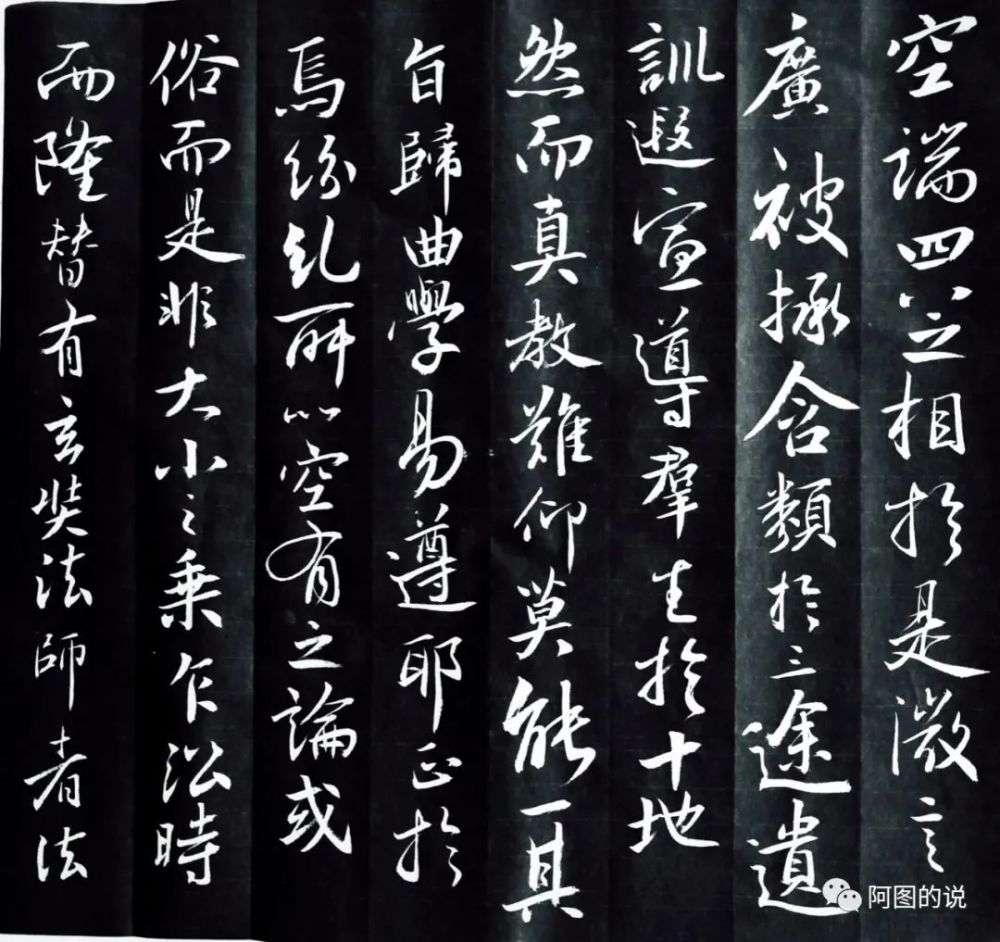 空端四八之相於是微言
廣被拯含類於三途遺
訓遐宣導羣生於十地
然而真教難仰莫能一其
旨歸曲學易遵耶正於
焉紛糺所以空有之論或
俗而是非大小之乘乍沿時
而隆替有玄奘法師者法
阿图的说